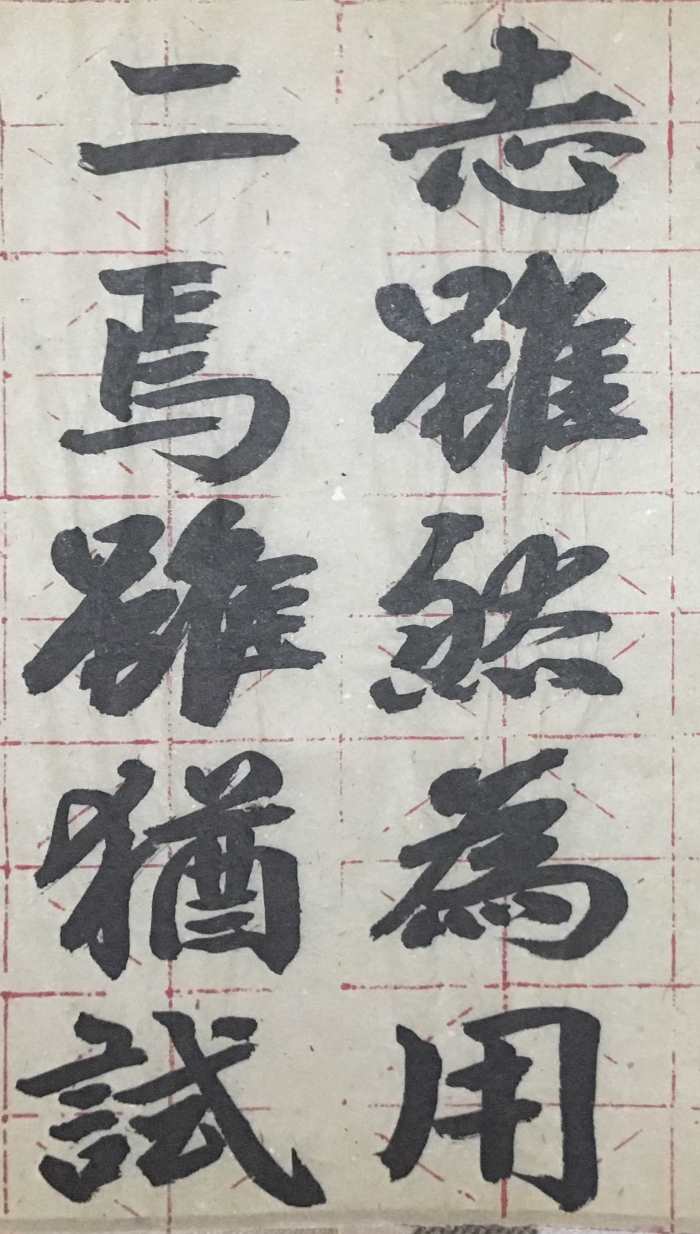 志雖然為用
二焉雖猶試